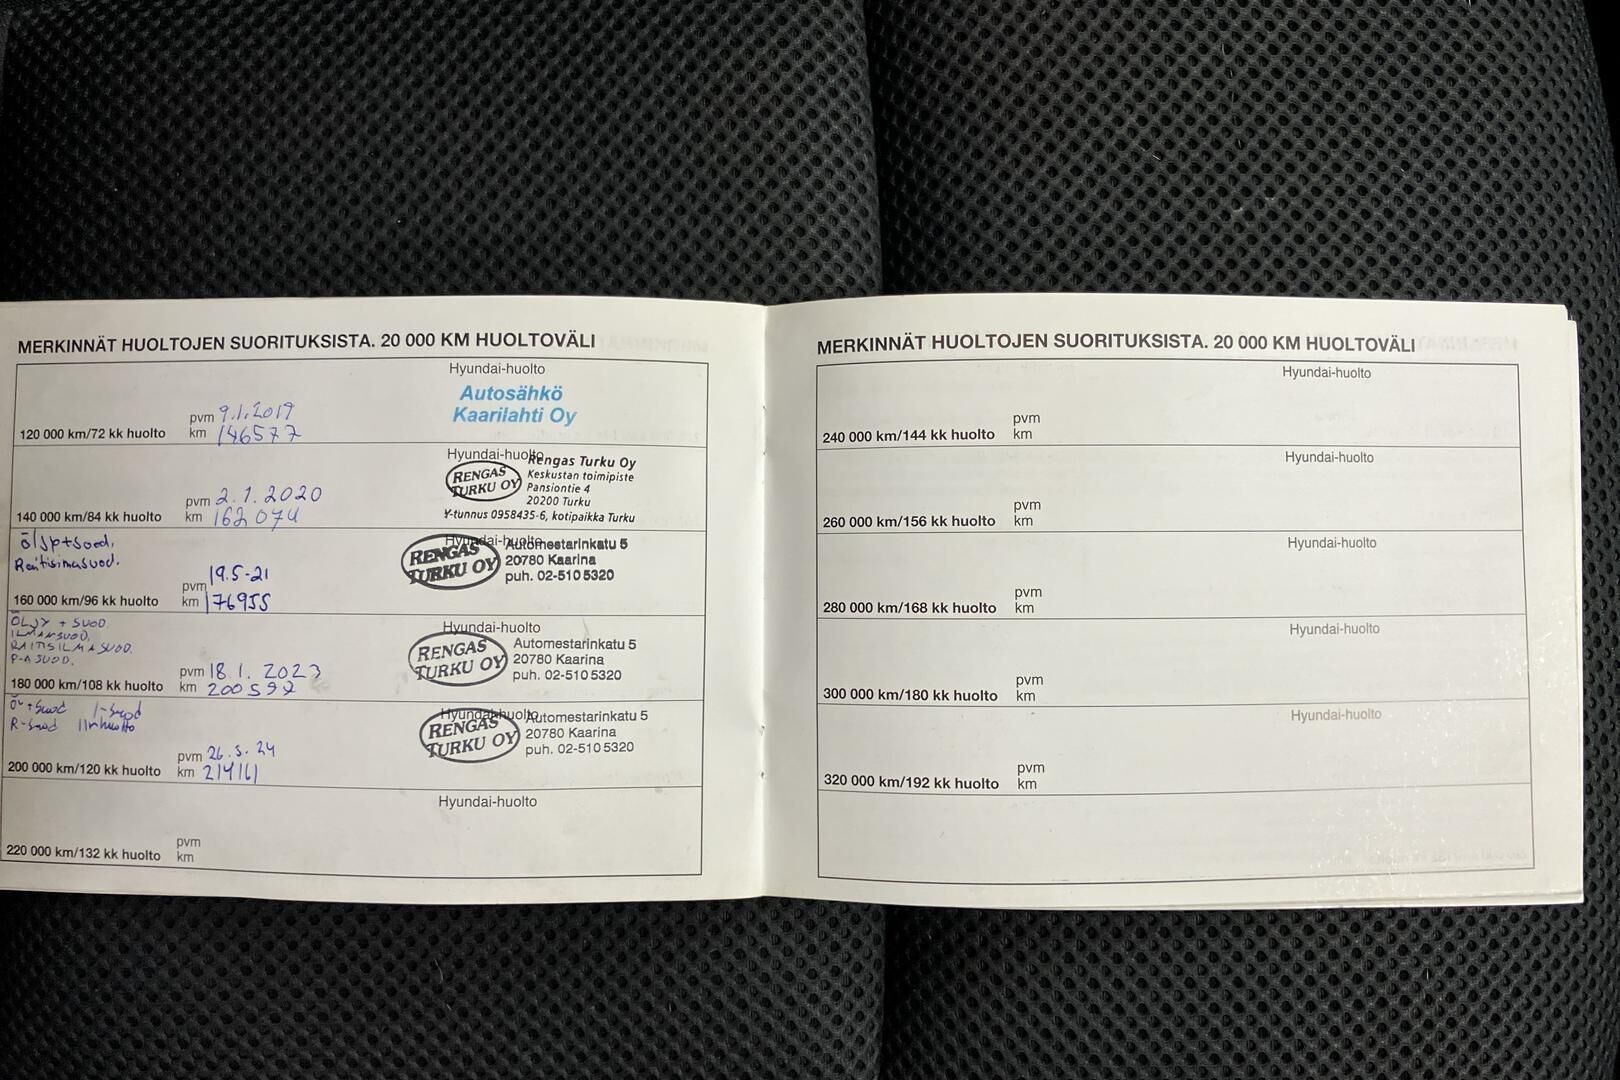 MERKINNÄT HUOLTOJEN SUORITUKSISTA. 20 000 KM HUOLTOVÄLI
Hyundai-huolto
Autosähkö
Kaarilahti Oy
pvm 9.1.2019
120 000 km/72 kk huolto km 146577
Hyundai-huolto
RENGAS TURKU OY
Rengas Turku Oy
Keskustan toimipiste
Pansiontie 4
20200 Turku
Y-tunnus 0958435-6, kotipaikka Turku
pvm 2.1.2020
140 000 km/84 kk huolto km 162074
Hyundai-huolto
RENGAS TURKU OY
Automestarinkatu 5
20780 Kaarina
puh. 02-510 5320
pvm 19.5-21
160 000 km/96 kk huolto km 176955
ÖLJY + SUOD.
ILMANSUOD.
RAITISILMASUOD.
P-A SUOD.
Hyundai-huolto
RENGAS TURKU OY
Automestarinkatu 5
20780 Kaarina
puh. 02-510 5320
pvm 18.1. 2023
180 000 km/108 kk huolto km 200592
+suod I-suod
R-suod
Hyundai-huolto
RENGAS TURKU OY
Automestarinkatu 5
20780 Kaarina
puh. 02-510 5320
pvm 26.5.24
200 000 km/120 kk huolto km 214161
Hyundai-huolto
pvm
220 000 km/132 kk huolto km
MERKINNÄT HUOLTOJEN SUORITUKSISTA. 20 000 KM HUOLTOVÄLI
Hyundai-huolto
pvm
240 000 km/144 kk huolto km
Hyundai-huolto
pvm
260 000 km/156 kk huolto km
Hyundai-huolto
pvm
280 000 km/168 kk huolto km
Hyundai-huolto
pvm
300 000 km/180 kk huolto km
Hyundai-huolto
pvm
320 000 km/192 kk huolto km